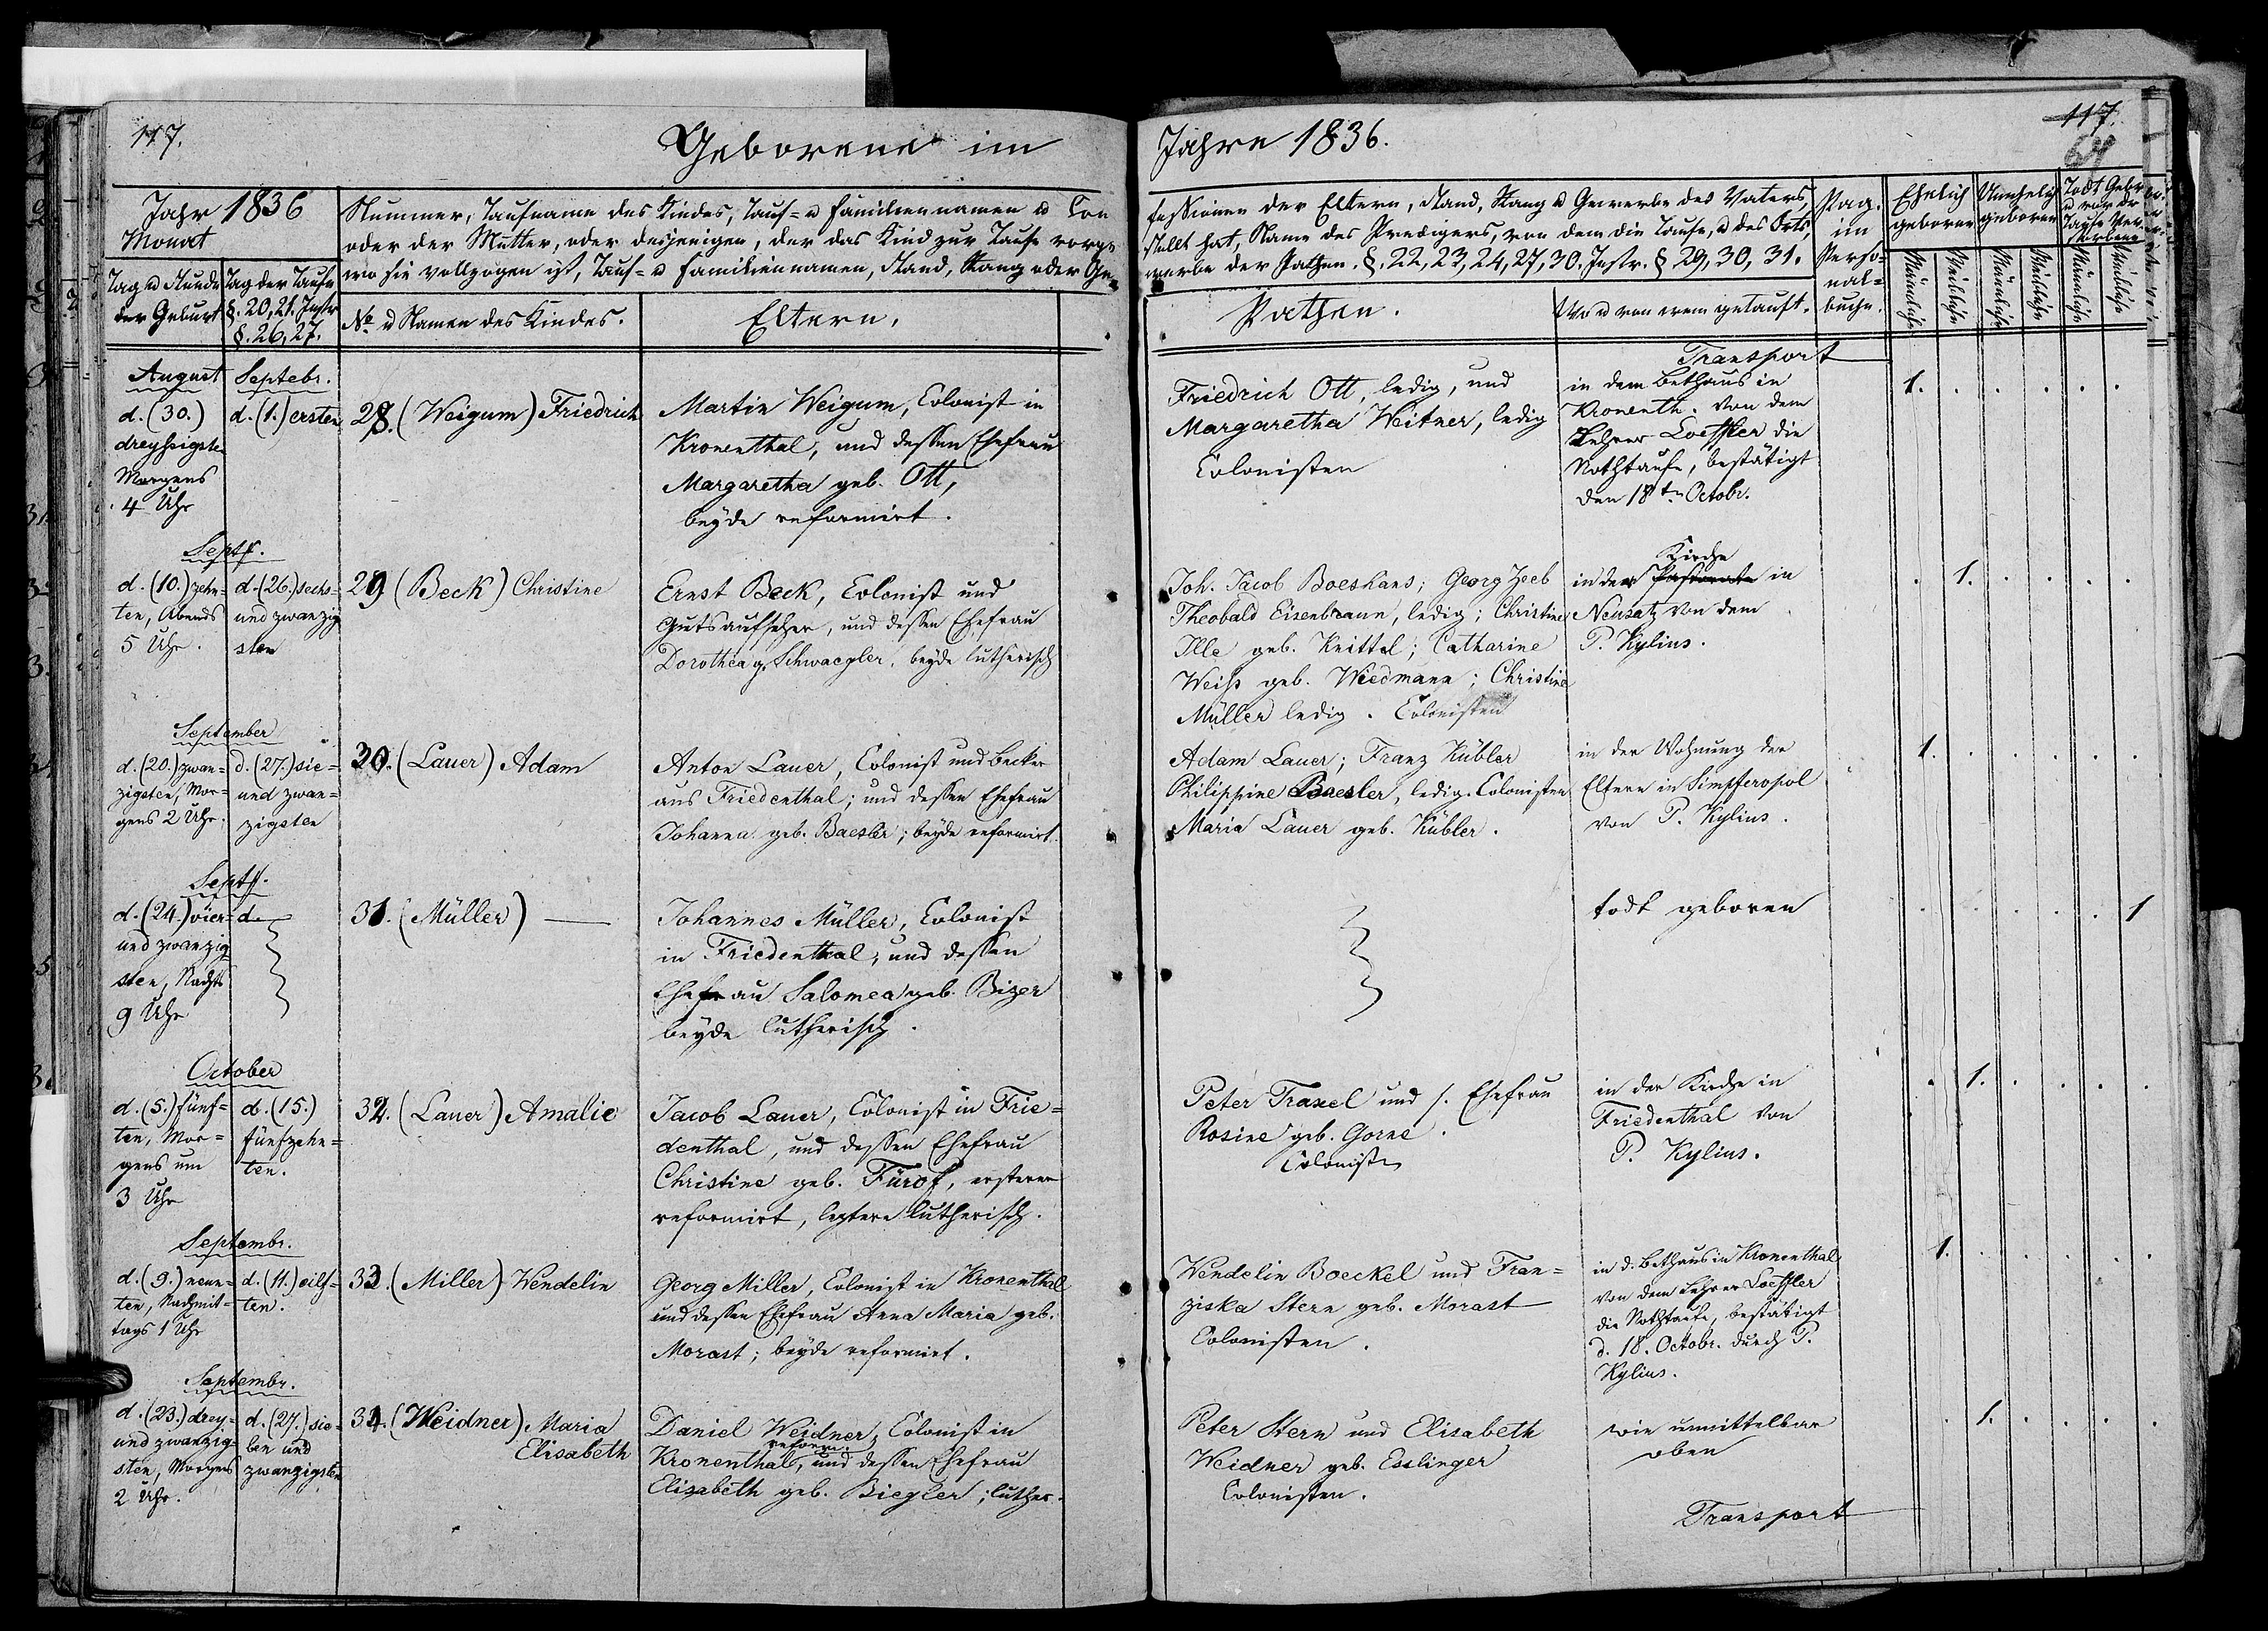 117.
Geborene im
Jahr 1836
Monat
Tag u Stunde der Geburt
Tag der Taufe §. 20, 21. Instr. §. 26, 27.
Nummer, Taufname des Kindes, Tauf= u Familiennamen u Con
oder der Mutter, oder desjenigen, der das Kind zur Taufe vorge
wo sie vollzogen ist, Tauf= u Familiennamen, Stand, Rang oder Ge=
No u Namen des Kindes.
Eltern.
August
d. (30.)
dreyssigsten
Morgens
4 Uhr
Septebr.
d. (1.) ersten
28. (Weigum) Friedrich
Martin Weigum, Colonist in
Kronenthal, und dessen Ehefrau
Margaretha geb. Ott,
beyde reformirt.
Septr.
d. (10.) zehn=
ten, Abends
5 Uhr.
d. (26.) sechs=
und zwanzig
sten
29 (Beck) Christine
Ernst Beck, Colonist und
Gutsaufseher, und dessen Ehefrau
Dorothea g. Schwaegler, beyde lutherisch
September
d. (20.) zwan=
zigsten, Mor=
gens 2 Uhr.
d. (27.) sie=
und zwan=
zigsten
30. (Lauer) Adam
Anton Lauer, Colonist und Becker
aus Friedenthal; und dessen Ehefrau
Johanna geb. Baesler; beyde reformirt.
Septr.
d. (24.) vier=
und zwanzig
sten, Nachts
9 Uhr
d.
31. (Müller) —
Johannes Müller, Colonist
in Friedenthal, und dessen
Ehefrau Salomea geb. Bizer
beyde lutherisch.
October
d. (5.) fünf=
ten, Mor=
gens um
3 Uhr
d. (15.)
fünfzehn=
ten.
32. (Lauer) Amalie
Jacob Lauer, Colonist in Frie=
denthal, und dessen Ehefrau
Christine geb. Fürof, ersterer
reformirt, leztere lutherisch.
Septembr.
d. (9.) neun=
ten, Nachmit=
tags 1 Uhr
d. (11.) eilf=
ten.
33. (Miller) Wendelin
Georg Miller, Colonist in Kronenthal
und dessen Ehefrau Anna Maria geb.
Morast; beyde reformirt.
Septembr.
d. (23.) drey=
und zwanzig=
sten, Morgens
2 Uhr.
d. (27.) sie=
ben und
zwanzigsten
34. (Weidner) Maria
Elisabeth
Daniel Weidner, Colonist in
reform.
Kronenthal, und dessen Ehefrau
Elisabeth geb. Biegler; luther.
Jahre 1836.
117.
64
fessionen der Eltern, Stand, Rang u Gewerbe des Vaters,
stellt hat, Name des Predigers, von dem die Taufe, u des Orts,
werbe der Pathen. §. 22, 23, 24, 27, 30. Instr. § 29, 30, 31.
Pathen.
Wo u von wem getauft.
Pag.
im
Perso=
nal=
buche.
Ehelich
geboren
Unehelich
geboren
Todt Gebr
u vor der
Taufe Ver
storbene
Männliche
Weibliche
Männliche
Weibliche
Männliche
Weibliche
Transport
Friedrich Ott, ledig, und
Margaretha Weitner, ledig
Colonisten
in dem Bethaus in
Kronenth. von dem
Lehrer Loeffler die
Nothtaufe, bestätigt
den 18ten Octobr.
1.
Joh. Jacob Boeshans; Georg Zeeb
Theobald Eisenbraun, ledig; Christine
Ille geb. Knittel; Catharine
Weiss geb. Wiedmann; Christine
Müller ledig. Colonisten
Kirche
in der Pastorate in
Neusatz von dem
P. Kylius.
1.
Adam Lauer; Franz Kübler
Philippine Baesler, ledig. Colonisten
Maria Lauer geb. Kübler.
in der Wohnung der
Eltern in Simpferopol
von P. Kylius.
1.
todt geboren
1
Peter Traxel und s. Ehefrau
Rosine geb. Gorne.
Colonisten
in der Kirche in
Friedenthal von
P. Kylius.
1.
Wendelin Boeckel und Fran=
ziska Stern geb. Morast
Colonisten.
in d. Bethaus in Kronenthal
von dem Lehrer Loeffler
die Nothtaufe, bestätigt
d. 18. Octobr. durch P.
Kylius.
1.
Peter Stern und Elisabeth
Weidner geb. Esslinger
Colonisten.
wie unmittelbar
oben
1.
Transport